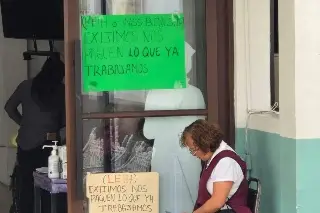 EXIJIMOS NOS
PAGUEN LO QUE YA
TRABAJAMOS
EXIJIMOS NOS
PAGUEN LO QUE YA
TRABAJAMOS